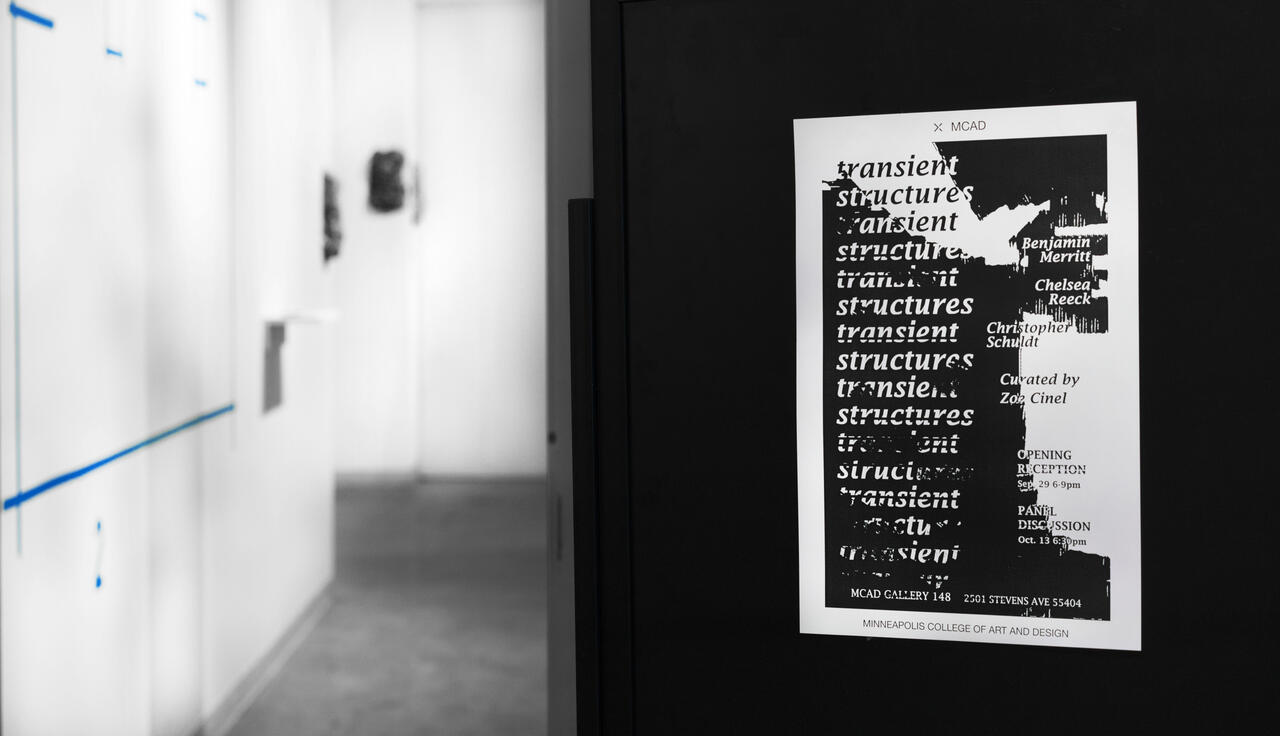 MCAD
transient
structures
transient
structures
transient
structures
transient
structures
transient
structures
transient
structures
transient
structu
transient
Benjamin
Merritt
Chelsea
Reeck
Christopher
Schuldt
Curated by
Zoe Cinel
OPENING
RECEPTION
Sep. 29 6-9pm
PANEL
DISCUSSION
Oct. 13 6:30pm
MCAD GALLERY 148 2501 STEVENS AVE 55404
MINNEAPOLIS COLLEGE OF ART AND DESIGN